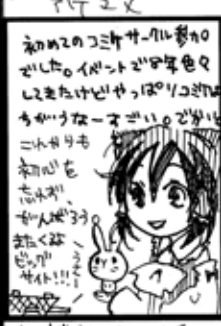 初めてのコミケサークル参加
でした。イベントで8年色々
してきたけどやっぱりコミケは
ちがうなーすごい。でかい
これからも
初心を
忘れず、
がんばろう
またくるよ
ビッグ
サイト!!!